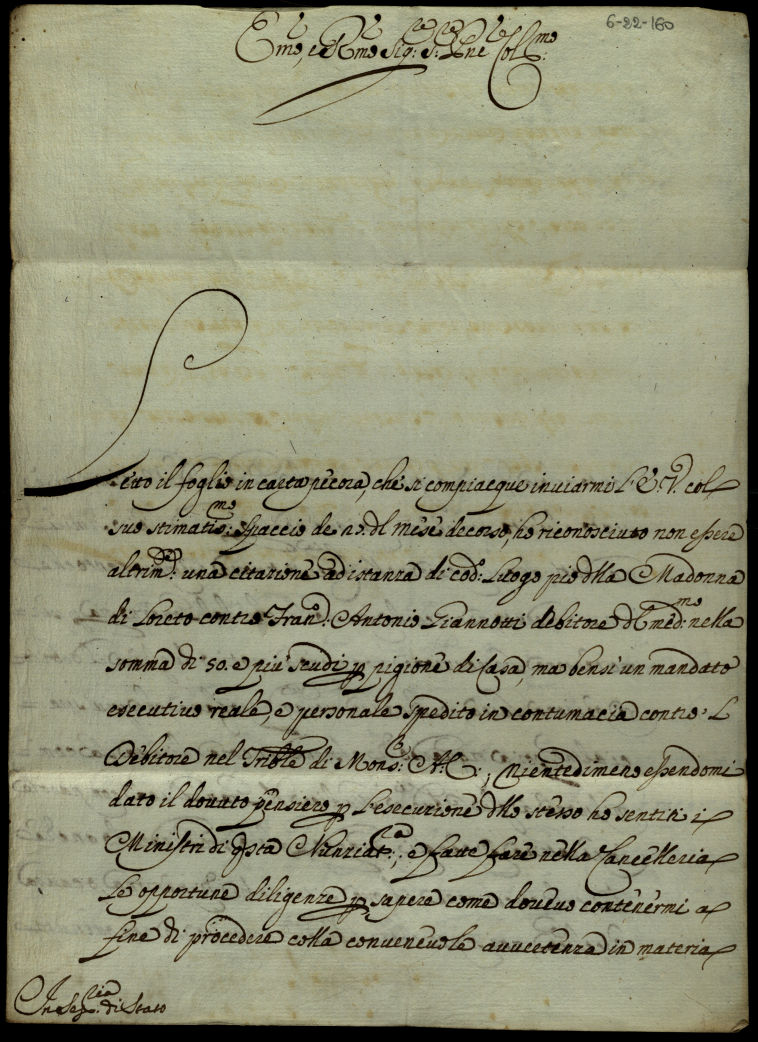 6-22-160
Emo, e Rmo Sig.re S.r Pne Col.mo
Letto il foglio in carta pecora, che si compiacque inviarmi L'E. V. col
suo stimatis.mo spaccio de 27. dl mese decorso, ho riconosciuto non essere
altrim.ti una citazione ad istanza di cod.o Luogo pio dlla Madonna
di Loreto contro Fran.co Antonio Giannotti debitore dl med.mo nella
somma di 50. e più scudi p pigione di Casa, ma bensi un mandato
esecutivo reale, e personale spedito in contumacia contro L
Debitore nel Trible di Mons.r A. C.; Nientedimeno essendomi
dato il dovuto pensiero p L'esecuzione dllo stesso ho sentiti i
Ministri di qsta Nunziat.ra, e fatte fare nella Cancelleria
Le opportune diligenze p sapere come dovevo contenermi a
fine di procedere colla convenevole avvertenza in materia
In Seg.ria di Stato